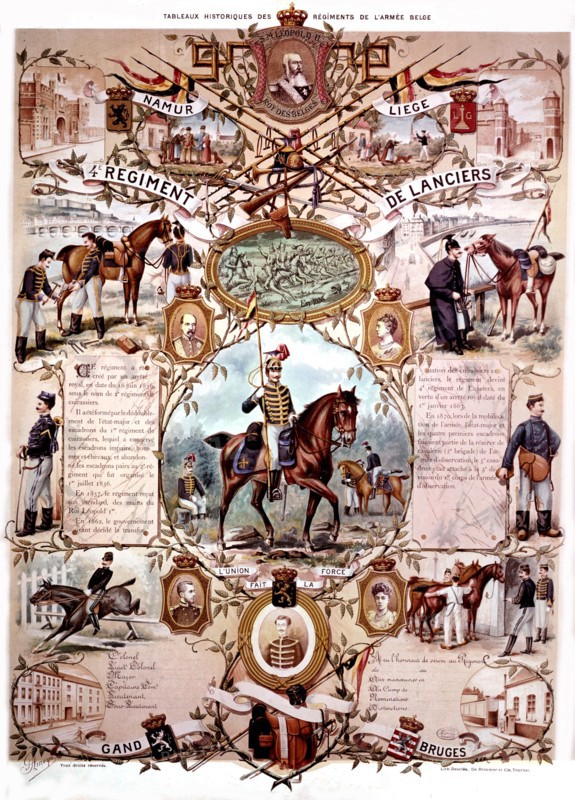 TABLEAUX HISTORIQUES DES RÉGIMENTS DE L'ARMÉE BELGE
S.M. LEOPOLD II
ROY DES BELGES
NAMUR
LIEGE
L G
4e REGIMENT
DE LANCIERS
En
CE régiment a été
créé par un arrêté
royal, en date du 16 juin 1836,
sous le nom de 2e régiment de
cuirassiers.
Il a été formé par le dédouble-
ment de l'état-major et des
escadrons du 1er régiment de
cuirassiers, lequel a conservé
les escadrons impairs, hom-
mes et chevaux, et abandon-
né les escadrons pairs au 2e ré-
giment qui fut organisé le
1er juillet 1836.
En 1837, le régiment reçut
son étendard, des mains du
Roi Léopold Ier.
En 1862, le gouvernement
ayant décidé la transfor-
mation des cuirassiers en
lanciers, le régiment devint
4e régiment de Lanciers, en
vertu d'un arrêté royal daté du
1er janvier 1863.
En 1870, lors de la mobilisa-
tion de l'armée, l'état-major et
les quatre premiers escadrons
faisaient partie de la réserve de
cavalerie (2e brigade) de l'ar-
mée d'observation, le 5e esca-
dron était attaché à la 3e divi-
sion du 1er corps de l'armée
d'observation.
L'UNION FAIT LA FORCE
Colonel
Lieut Colonel
Major
Capitaine Comt
Lieutenant
Sous-Lieutenant
A eu l'honneur de servir au Régiment
du
au
Aux manœuvres en
Au Camp de
Nominations
Distinctions
GAND
BRUGES
Tous droits réservés.